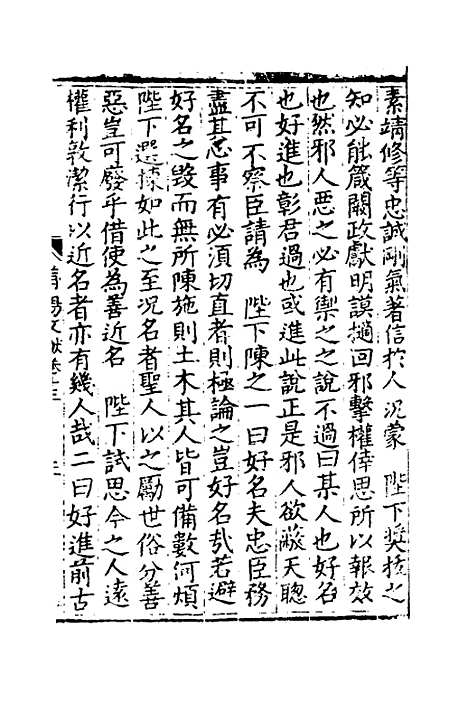 素靖修等忠誠剛氣著信於人況蒙 陛下奬拔之
知必能箴闕政獻明謨撾回邪擊權倖思所以報效
也然邪人惡之必有禦之之說不過曰某人也好名
也好進也彰君過也或進此說正是邪人欲蔽天聰
不可不察臣請為 陛下陳之一曰好名夫忠臣務
盡其忠事有必須切直者則極論之豈好名哉若避
好名之毀而無所陳施則土木其人皆可備數何煩
陛下選擇如此之至況名者聖人以之勵世俗分善
惡豈可廢乎借使為善近名 陛下試思今之人遠
權利敦潔行以近名者亦有幾人哉二曰好進前古
莆陽文獻卷十三